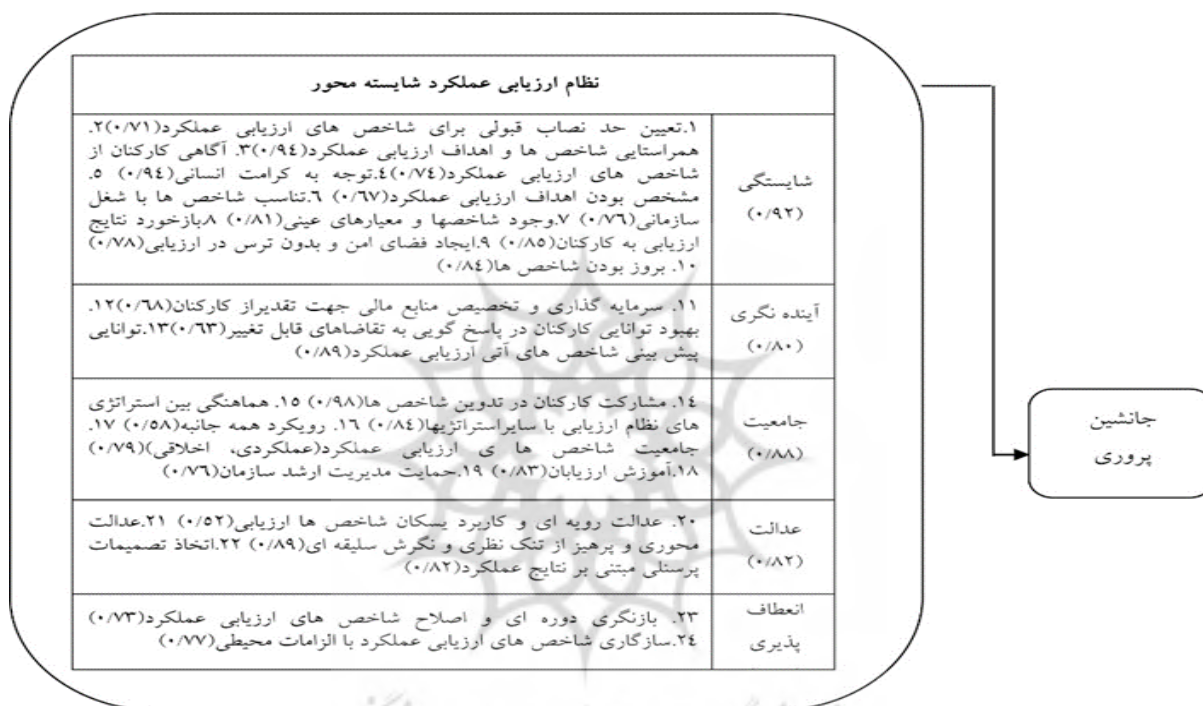 نظام ارزیابی عملکرد شایسته محور
شایستگی
(۰/۹۲)
۱.تعیین حد نصاب قبولی برای شاخص های ارزیابی عملکرد(۰/۷۱)۲.
همراستایی شاخص ها و اهداف ارزیابی عملکرد(۰/۹٤)۳. آگاهی کارکنان از
شاخص های ارزیابی عملکرد(۰/۷٤)٤.توجه به کرامت انسانی(۰/۹٤) ٥.
مشخص بودن اهداف ارزیابی عملکرد(۰/٦۷) ٦.تناسب شاخص ها با شغل
سازمانی(۰/۷٦) ۷.وجود شاخصها و معیارهای عینی(۰/۸۱) ۸.بازخورد نتایج
ارزیابی به کارکنان(۰/۸٥) ۹.ایجاد فضای امن و بدون ترس در ارزیابی(۰/۷۸)
۱۰. بروز بودن شاخص ها(۰/۸٤)
آینده نگری
(۰/۸۰)
۱۱. سرمایه گذاری و تخصیص منابع مالی جهت تقدیراز کارکنان(۰/٦۸)۱۲.
بهبود توانایی کارکنان در پاسخ گویی به تقاضاهای قابل تغییر(۰/٦۳)۱۳.توانایی
پیش بینی شاخص های آتی ارزیابی عملکرد(۰/۸۹)
جامعیت
(۰/۸۸)
۱٤. مشارکت کارکنان در تدوین شاخص ها(۰/۹۸) ۱٥. هماهنگی بین استراتژی
های نظام ارزیابی با سایراستراتژیها(۰/۸٤) ۱٦. رویکرد همه جانبه(۰/٥۸) ۱۷.
جامعیت شاخص ها ی ارزیابی عملکرد(عملکردی، اخلاقی)(۰/۷۹)
۱۸.آموزش ارزیابان(۰/۸۳) ۱۹.حمایت مدیریت ارشد سازمان(۰/۷٦)
عدالت
(۰/۸۲)
۲۰. عدالت رویه ای و کاربرد یسکان شاخص ها ارزیابی(۰/٥۲) ۲۱.عدالت
محوری و پرهیز از تنک نظری و نگرش سلیقه ای(۰/۸۹) ۲۲.اتخاذ تصمیمات
پرسنلی مبتنی بر نتایج عملکرد(۰/۸۲)
انعطاف
پذیری
۲۳. بازنگری دوره ای و اصلاح شاخص های ارزیابی عملکرد(۰/۷۳)
۲٤.سازگاری شاخص های ارزیابی عملکرد با الزامات محیطی(۰/۷۷)
جانشین
پروری